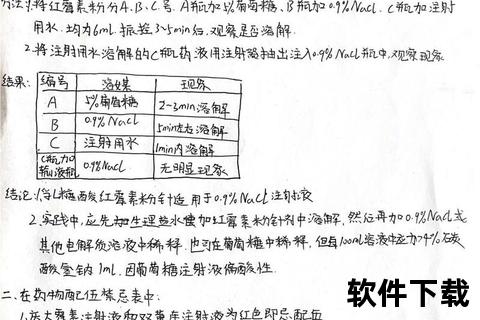 方法:1.将红霉素粉分A、B、C号. A瓶加5%葡萄糖, B瓶加0.9%NaCl. C瓶加注射
用水. 均为6ml. 振摇3~5min后, 观察是否溶解.
2.将注射用水溶解的C瓶药液用注射器抽出注入0.9%NaCl瓶中, 观察现象
结果:
编号 溶媒 现象
A 5%葡萄糖 2-3min溶解
B 0.9%NaCl 5min左右溶解
C 注射用水 1min内溶解
C瓶加入输液瓶 0.9%NaCl 无明显现象
结论:1.乳糖酸红霉素粉针适用于0.9%NaCl注射液
2.实践中, 应先加生理盐水 加红霉素粉针剂中溶解, 然后再加0.9%NaCl或
其他电解质溶液中稀释. 也可在葡萄糖中稀释, 但每100ml溶液中应加入4%碳
酸氢钠1ml. 因葡萄糖注射液偏酸性.
二.在药物配伍禁忌表中:
注射液和 注射液为红色即忌配伍
软件下载